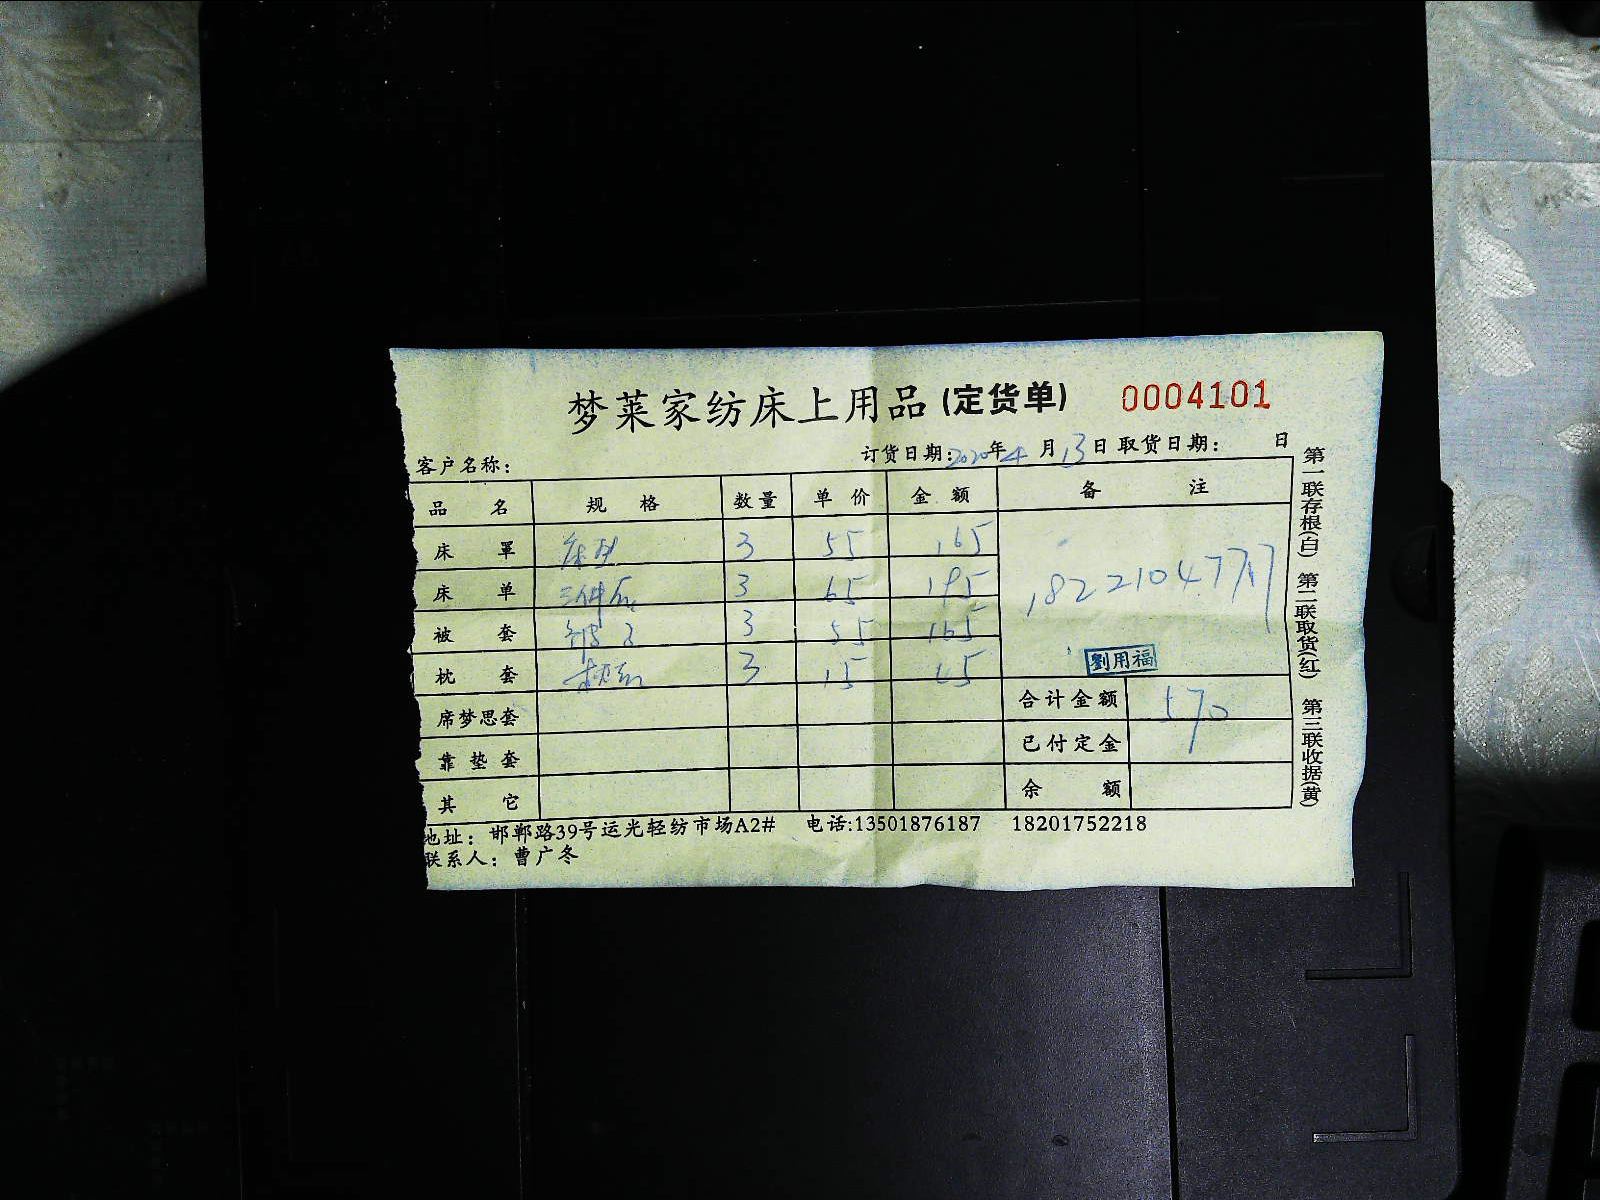 梦莱家纺床上用品(定货单) 0004101
客户名称: 订货日期:2020年4月13日 取货日期: 日
品名 规格 数量 单价 金额 备注
床罩 3 55 165
床单 三件套 3 65 195
被套 3 55 165
枕套 枕套 3 15 45
席梦思套
靠垫套
其它
劉用福
合计金额 570
已付定金
余额
地址:邯郸路39号运光轻纺市场A2# 电话:13501876187 18201752218
联系人:曹广冬
第一联存根(白) 第二联取货(红) 第三联收据(黄)